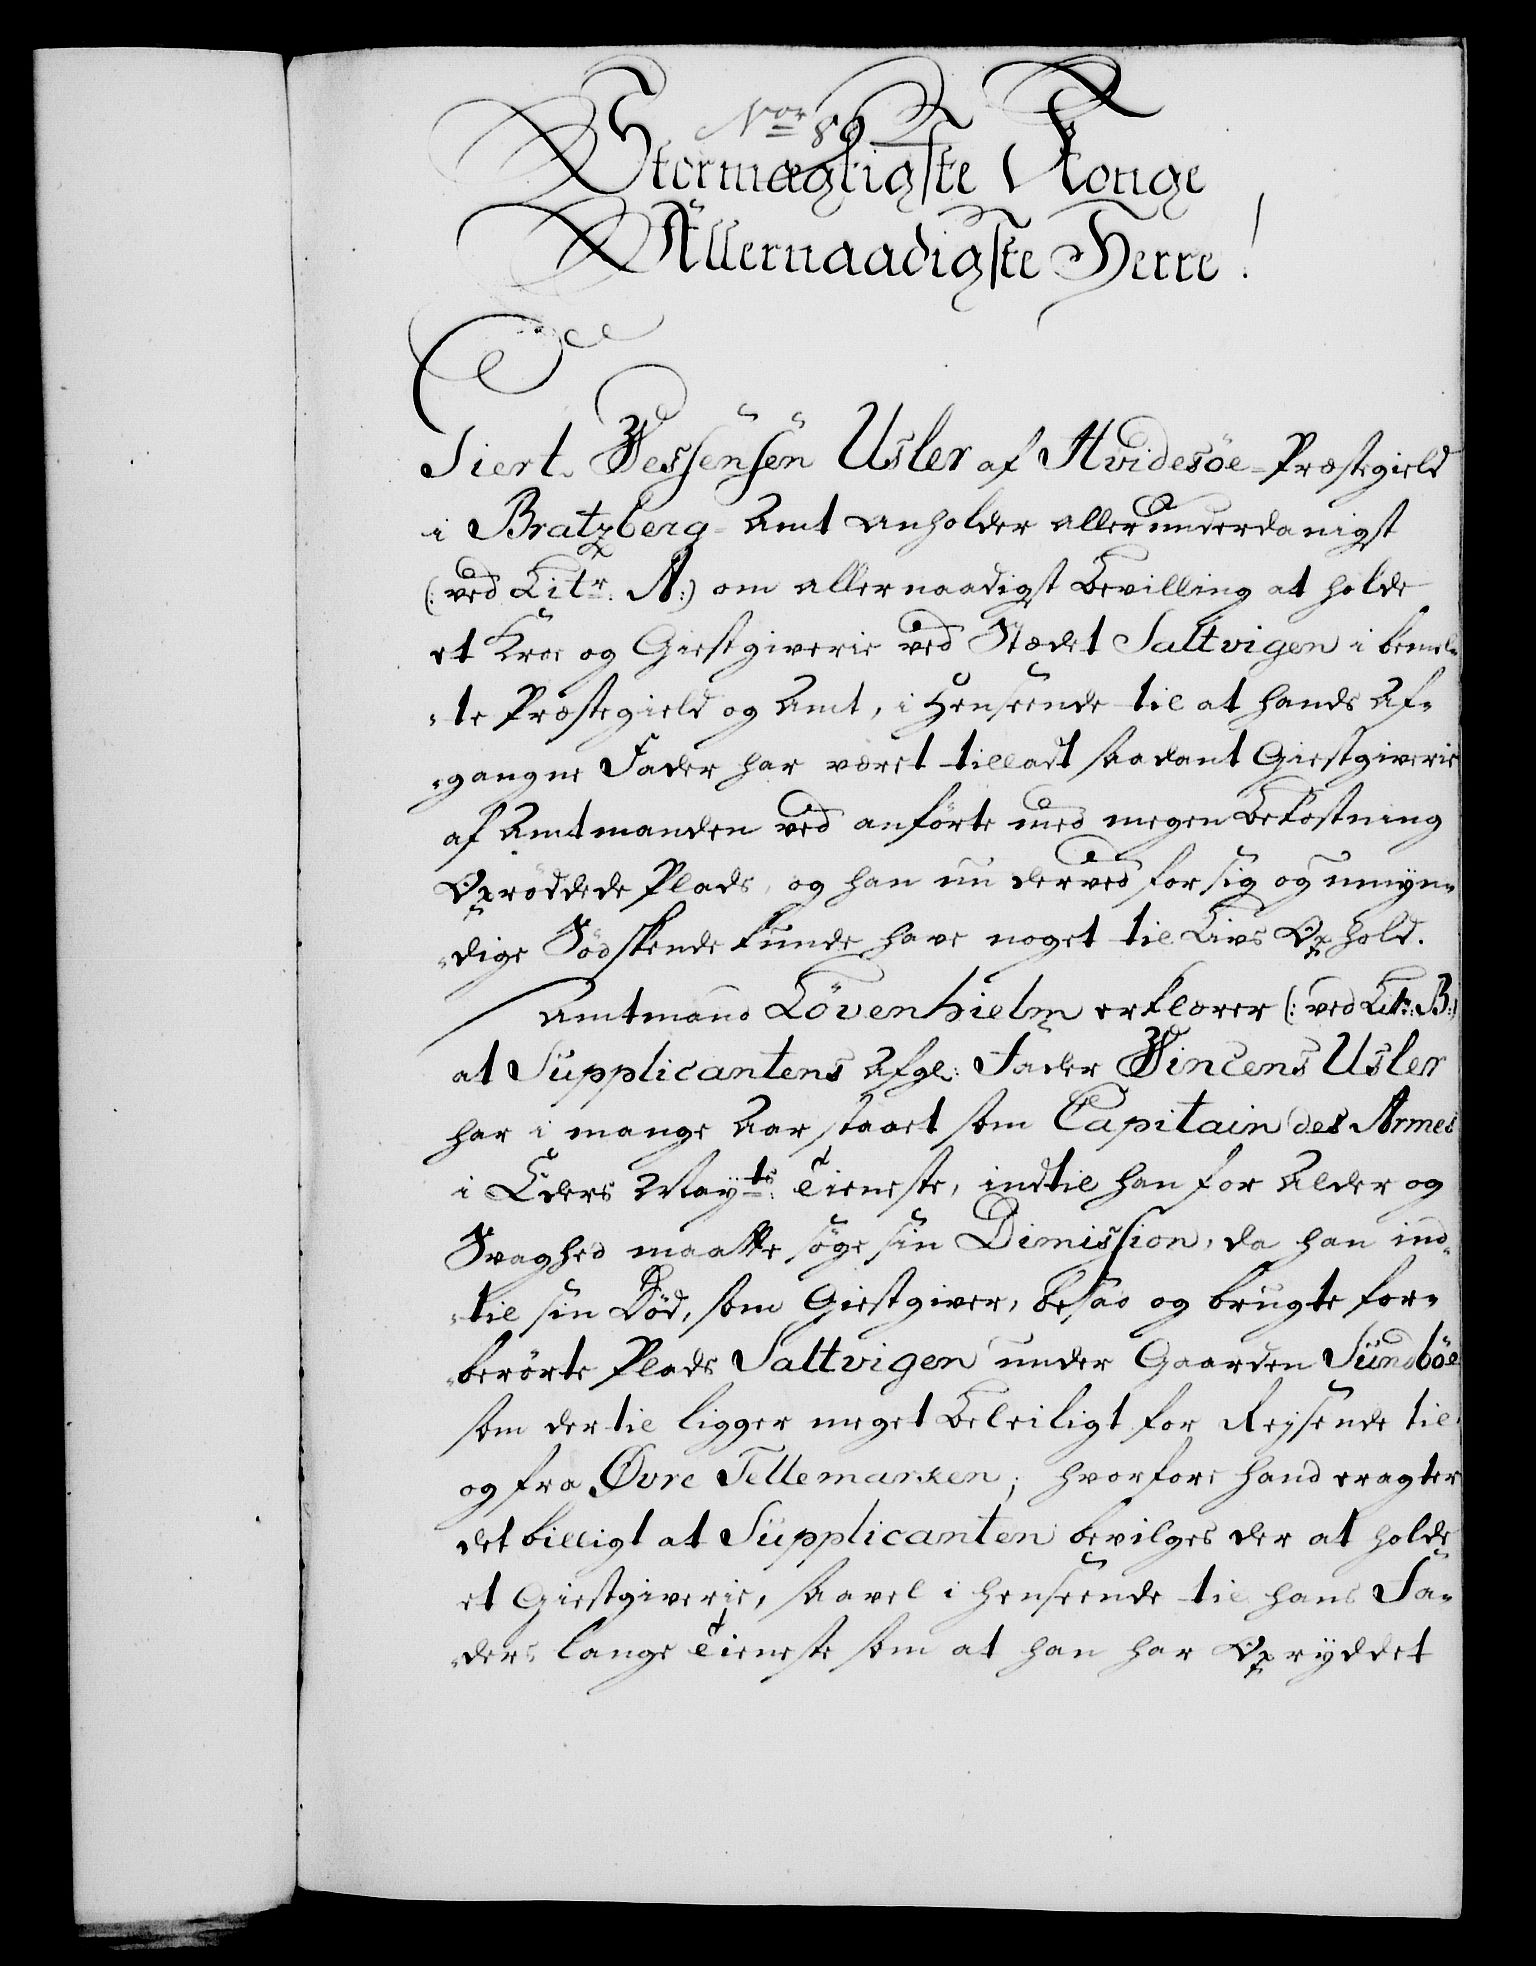 Nor 86
Stormægtigste Konge
Allernaadigste Herre!
Siert Wessensen Usler af Hvidesöe-Præstegield
i Bratzberg-Amt anholder allerunderdanigst
(: ved Litr. A:) om allernaadigst Bevilling at holde
et Kroe og Giestgiverie ved Stædet Saltvigen i bemel-
-te Præstegield og Amt, i Henseende til at hands Af-
-gangne Fader har været tilladt saadant Giestgiverie
af Amtmanden ved anförte med megen Bekostning
Opröddede Plads, og han nu derved for sig og umyn-
-dige Södskende kunde have noget til Livs Ophold.
Amtmand Lövenhielm erklærer (: ved Litr: B:)
at Supplicantens Afgl: Fader Vincens Usler
har i mange Aar staaet som Capitain des Armes
i Eders Mayts: Tieneste, indtil han for Alder og
Svaghed maatte söge sin Dimission, da han ind-
-til sin Död, som Giestgiver, besad og brugte for-
-berörte Plads Saltvigen under Gaarden Sundböe
som dertil ligger meget Beleiligt for Reysende til
og fra Øvre Tellemarken; hvorfore hand eragter
det billigt at Supplicanten bevilges der at holde
et Giestgiverie, saavel i henseende til hans Fa-
-ders lange Tieneste som at han har Opryddet